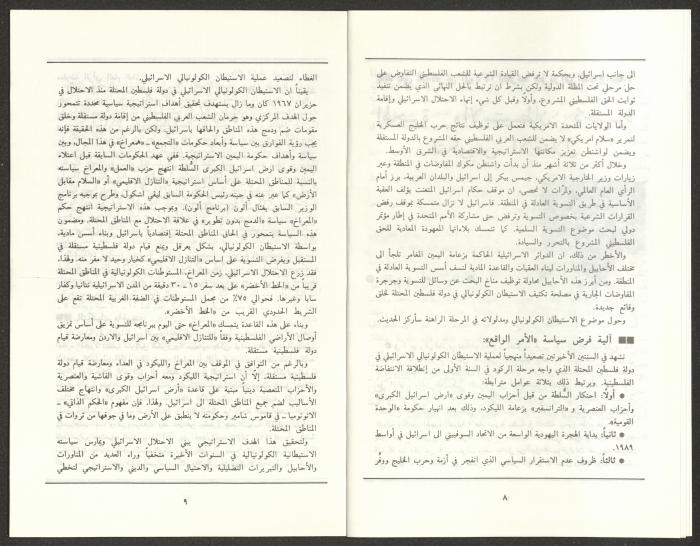 الى جانب اسرائيل. وبحكمة لا ترفض القيادة الشرعية للشعب الفلسطيني التفاوض على
حل مرحلي تحت المظلة الدولية ولكن بشرط ان ترتبط بالحل النهائي الذي يضمن تنفيذ
ثوابت الحق الفلسطيني المشروع، وأولاً وقبل كل شيء إنهاء الاحتلال الاسرائيلي وإقامة
الدولة المستقلة.
وأما الولايات المتحدة الامريكية فتعمل على توظيف نتائج حرب الخليج العسكرية
لتمرير «سلام امريكي» لا يضمن للشعب العربي الفلسطيني حقه المشروع بالدولة المستقلة
ويضمن لواشنطن تعزيز مكانتها الاستراتيجية والاقتصادية في الشرق الأوسط.
وخلال أكثر من ثلاثة أشهر منذ أن بدأت واشنطن مكوك المفاوضات في المنطقة وعبر
زيارات وزير الخارجية الامريكي، جيمس بيكر إلى اسرائيل والبلدان العربية، برز أمام
الرأي العام العالمي، ولمرّات لا تحصى، ان موقف حكام اسرائيل المتعنت يؤلف العقبة
الأساسية في طريق التسوية العادلة في المنطقة. فاسرائيل لا تزال متمسكة بموقف رفض
القرارات الشرعية بخصوص التسوية وترفض حتى مشاركة الأمم المتحدة في إطار مؤتمر
دولي لبحث موضوع التسوية السلمية. كما تتمسك بلاءاتها المعهودة المعادية للحق
الفلسطيني المشروع بالتحرر والسيادة.
والأخطر من ذلك، ان الدوائر الاسرائيلية الحاكمة بزعامة اليمين المغامر تلجأ الى
مختلف الأحابيل والمناورات لبناء العقبات والقاعدة المادية لنسف أسس التسوية العادلة في
المنطقة. ومن أبرز هذه الأحابيل محاولة توظيف مناخ البحث عن وسائل للتسوية وجرجرة
المفاوضات الجارية في مصلحة تكثيف الاستيطان الكولونيالي في دولة فلسطين المحتلة لخلق
وقائع جديدة.
وحول موضوع الاستيطان الكولونيالي ومدلولاته في المرحلة الراهنة سأركز الحديث.
آلية فرض سياسة «الأمر الواقع»:
نشهد في السنتين الأخيرتين تصعيداً منهجياً لعملية الاستيطان الكولونيالي الاسرائيلي في
دولة فلسطين المحتلة الذي واجه مرحلة الركود في السنة الأولى من إنطلاقة الانتفاضة
الفلسطينية. ويرتبط ذلك بثلاثة عوامل مترابطة:
● أولاً: احتكار السُّلطة من قبل أحزاب اليمين وقوى «ارض اسرائيل الكبرى»
وأحزاب العنصرية و«الترانسفير» بزعامة الليكود، وذلك بعد انهيار حكومة «الوحدة
القومية».
● ثانياً: بداية الهجرة اليهودية الواسعة من الاتحاد السوفييتي الى اسرائيل في أواسط
١٩٨٩.
● ثالثاً: ظروف عدم الاستقرار السياسي الذي انفجر في أزمة وحرب الخليج ووفَّر
٨
الغطاء لتصعيد عملية الاستيطان الكولونيالي الاسرائيلي.
يقيناً ان الاستيطان الكولونيالي الاسرائيلي في دولة فلسطين المحتلة منذ الاحتلال في
حزيران ١٩٦٧ كان وما زال يستهدف تحقيق أهداف استراتيجية سياسية محددة تتمحور
حول الهدف المركزي وهو حرمان الشعب العربي الفلسطيني من إقامة دولة مستقلة وخلق
مقومات ضم ودمج هذه المناطق والحاقها باسرائيل. ولكن بالرغم من هذه الحقيقة فإنه
يجب رؤية الفوارق بين سياسة وأبعاد حكومات «التجمع» ـ «المعراخ» في هذا المجال، وبين
سياسة وأهداف حكومة اليمين الاستراتيجية. ففي عهد الحكومات السابقة قبل اعتلاء
اليمين وقوى ارض اسرائيل الكبرى السُّلطة انتهج حزب «العمل» والمعراخ سياسته
بالنسبة للمناطق المحتلة على أساس استراتيجية «التنازل الاقليمي» أو «السلام مقابل
الأرض» كما عبر عنه في حينه رئيس الحكومة السابق ليفي اشكول، وطرح بوجبه برنامج
الوزير السابق يغئال ألون (برنامج ألون). وبموجب هذه الاستراتيجية انتهج حكم
«المعراخ» سياسة «الدمج بدون تطوير» في علاقة الاحتلال مع المناطق المحتلة. ومضمون
هذه السياسة يتمحور في الحاق المناطق المحتلة إقتصادياً باسرائيل وبناء أسس مادية،
بواسطة الاستيطان الكولونيالي، بشكل يعرقل ويمنع قيام دولة فلسطينية مستقلة في
المستقبل ويفرض التسوية على اساس «التنازل الاقليمي» كخيار وحيد لا مفر منه. ولهذا،
فقد زرع الاحتلال الاسرائيلي، زمن المعراخ، المستوطنات الكولونيالية في المناطق المحتلة
قريباً من «الخط الأخضر» على بعد سفر ١٥ ـ ٣٠ دقيقة من المدن الاسرائيلية نتانيا وكفار
سابا وغيرها. فحوالي ٧٥٪ من مجمل المستوطنات في الضفة الغربية المحتلة تقع على
الشريط الحدودي القريب من «الخط الأخضر».
وبناء على هذه القاعدة يتمسك «المعراخ» حتى اليوم ببرنامجه للتسوية على أساس تمزيق
أوصال الأراضي الفلسطينية وفقاً «للتنازل الاقليمي» بين اسرائيل والاردن ومعارضة قيام
دولة فلسطينية مستقلة.
وبالرغم من التوافق في الموقف بين المعراخ والليكود في العداء ومعارضة قيام دولة
فلسطينية مستقلة، إلّا أن استراتيجية الليكود ومعه أحزاب وقوى الفاشية والعنصرية
والأحزاب المتعصبة دينياً مبنية على قاعدة «أرض اسرائيل الكبرى» وانتهاج مختلف
الأساليب لضم جميع المناطق المحتلة الى اسرائيل. ولهذا، فإن مفهوم «الحكم الذاتي» ـ
الاتونوميا ـ في قاموس شامير وحكومته لا ينطبق على الأرض وما في جوفها من ثروات في
المناطق المحتلة.
ولتحقيق هذا الهدف الاستراتيجي يبني الاحتلال الاسرائيلي ويمارس سياسته
الاستيطانية الكولونيالية في السنوات الأخيرة متخفياً وراء العديد من المناورات
والأحابيل والتبريرات التضليلية والاحتيال السياسي والديني والاستراتيجي لتخطي
٩